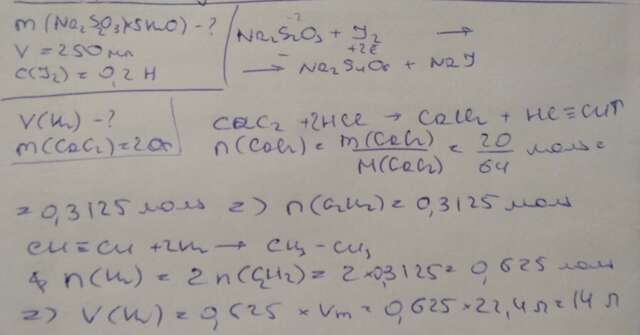 m(Na₂S₂O₃×5H₂O) - ?
V = 250 мл
C(J₂) = 0,2 Н
Na₂S₂O₃ + J₂ →
+2e
→ Na₂S₄O₆ + NaJ
V(H₂) - ?
m(CaC₂) = 20г
CaC₂ + 2HCl → CaCl₂ + HC≡CH↑
n(CaC₂) = m(CaC₂)/M(CaC₂) = 20/64 моль =
= 0,3125 моль => n(C₂H₂) = 0,3125 моль
CH≡CH + 2H₂ → CH₃-CH₃
n(H₂) = 2n(C₂H₂) = 2×0,3125 = 0,625 моль
=> V(H₂) = 0,625 × Vm = 0,625 × 22,4 л = 14 л